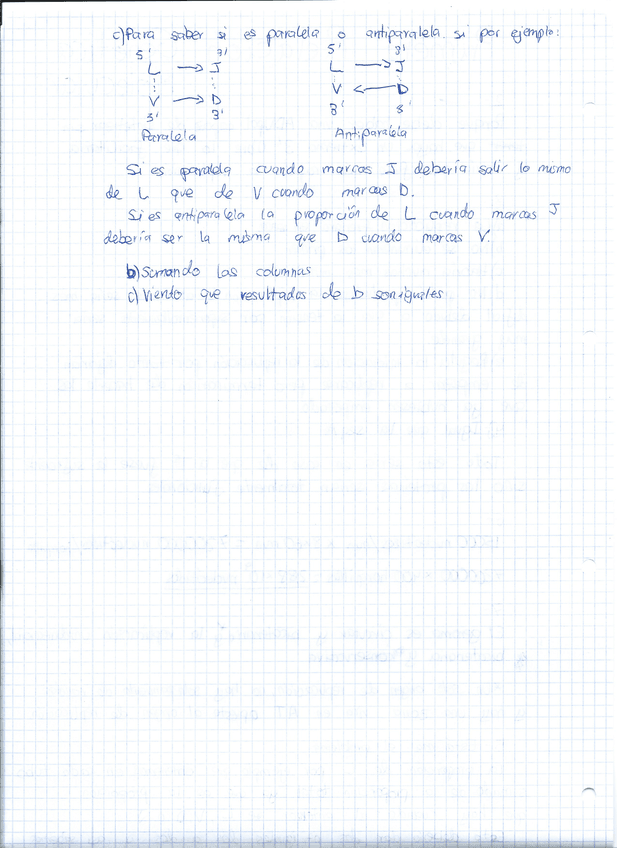 c) Para saber si es paralela o antiparalela. si por ejemplo:
5' 3' 5' 3'
L → J L → J
V → D V ← D
3' 3' 3' 3'
Paralela Antiparalela
Si es paralela cuando marcas J debería salir lo mismo
de L que de V cuando marcas D.
Si es antiparalela la proporción de L cuando marcas J
debería ser la misma que D cuando marcas V.
b) Sumando las columnas
c) Viento que resultados de b son iguales